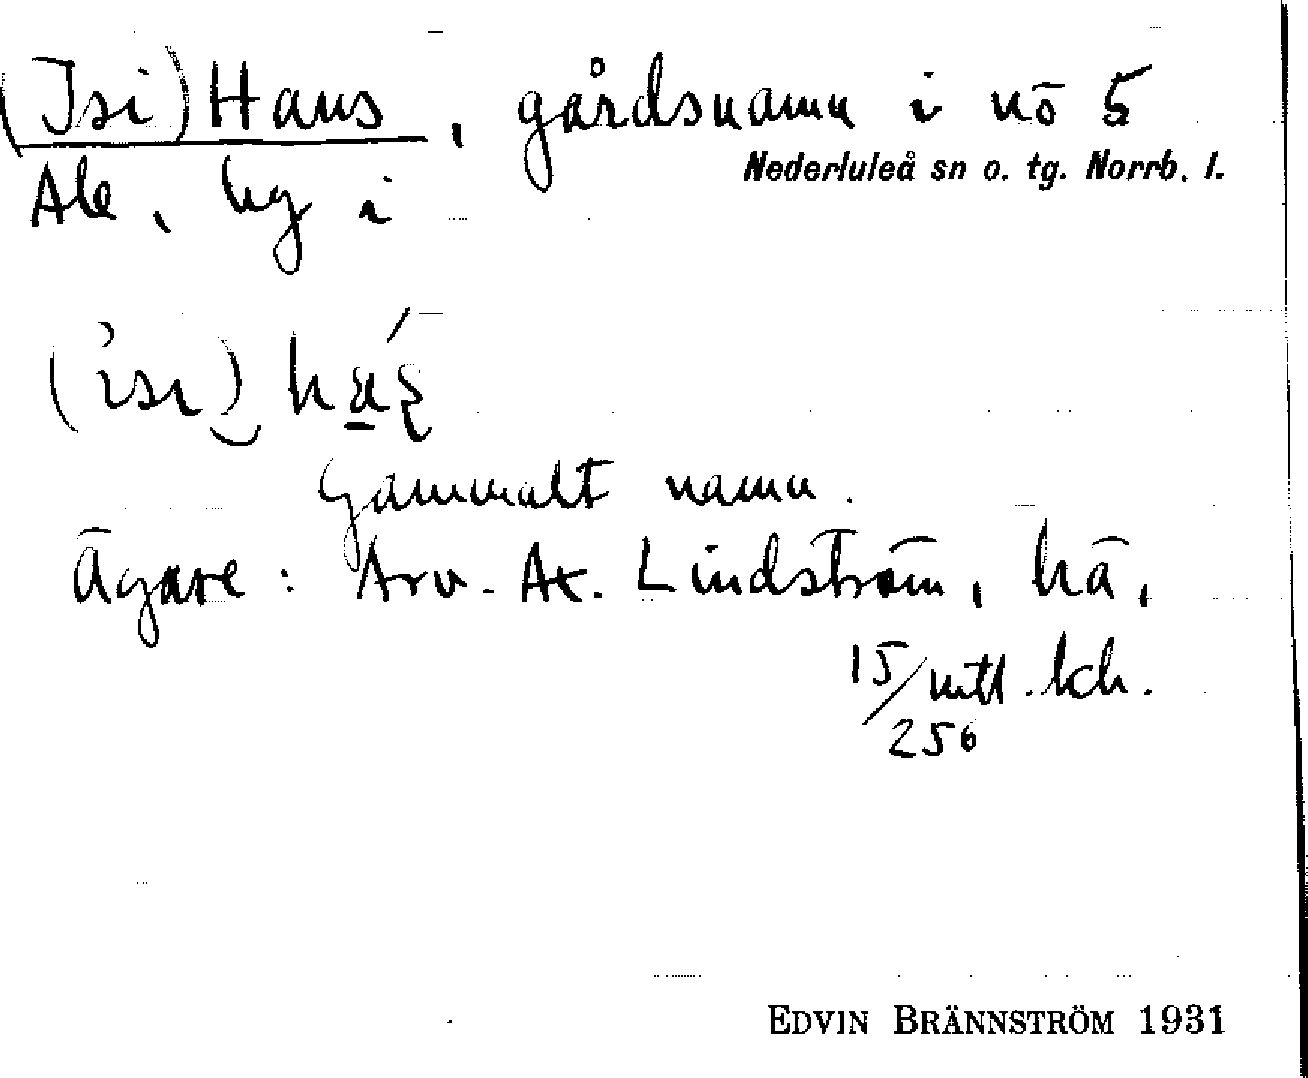 (Isi)Hans, gårdsnamn i nö 5
Nederluleå sn o. tg. Norrb. l.
Ale, by i
Gammalt namn.
Ägare: Arv. Ax. Lindström, hä,
15/256 mtl. kch.
EDVIN BRÄNNSTRÖM 1931